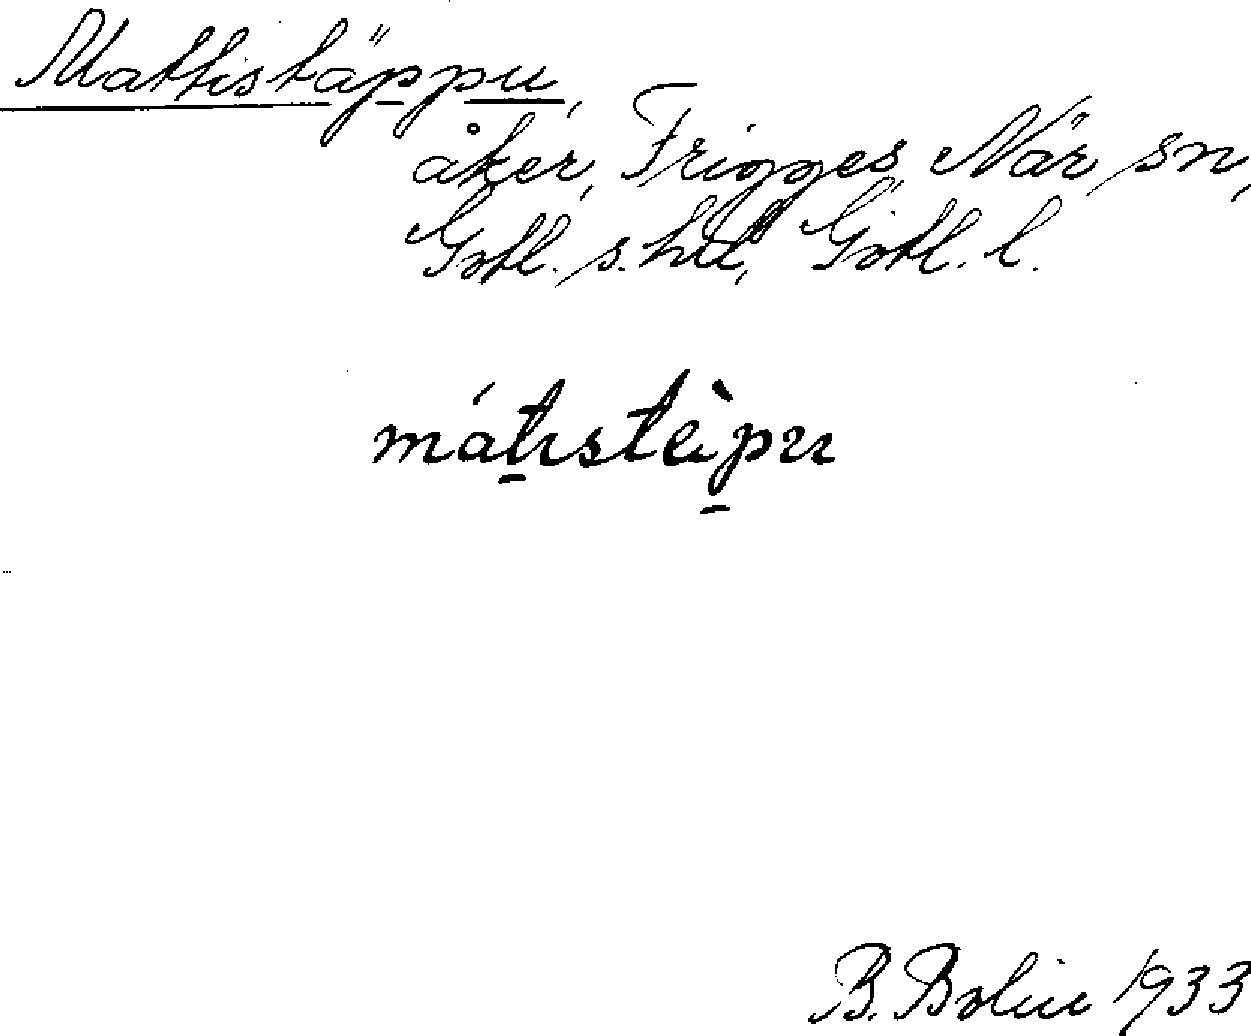 Mattistäppu,
åker, Frigges, När sn,
Gotl. s. hd, Gotl. l.
mátıstèpu
B. Bolin 1933